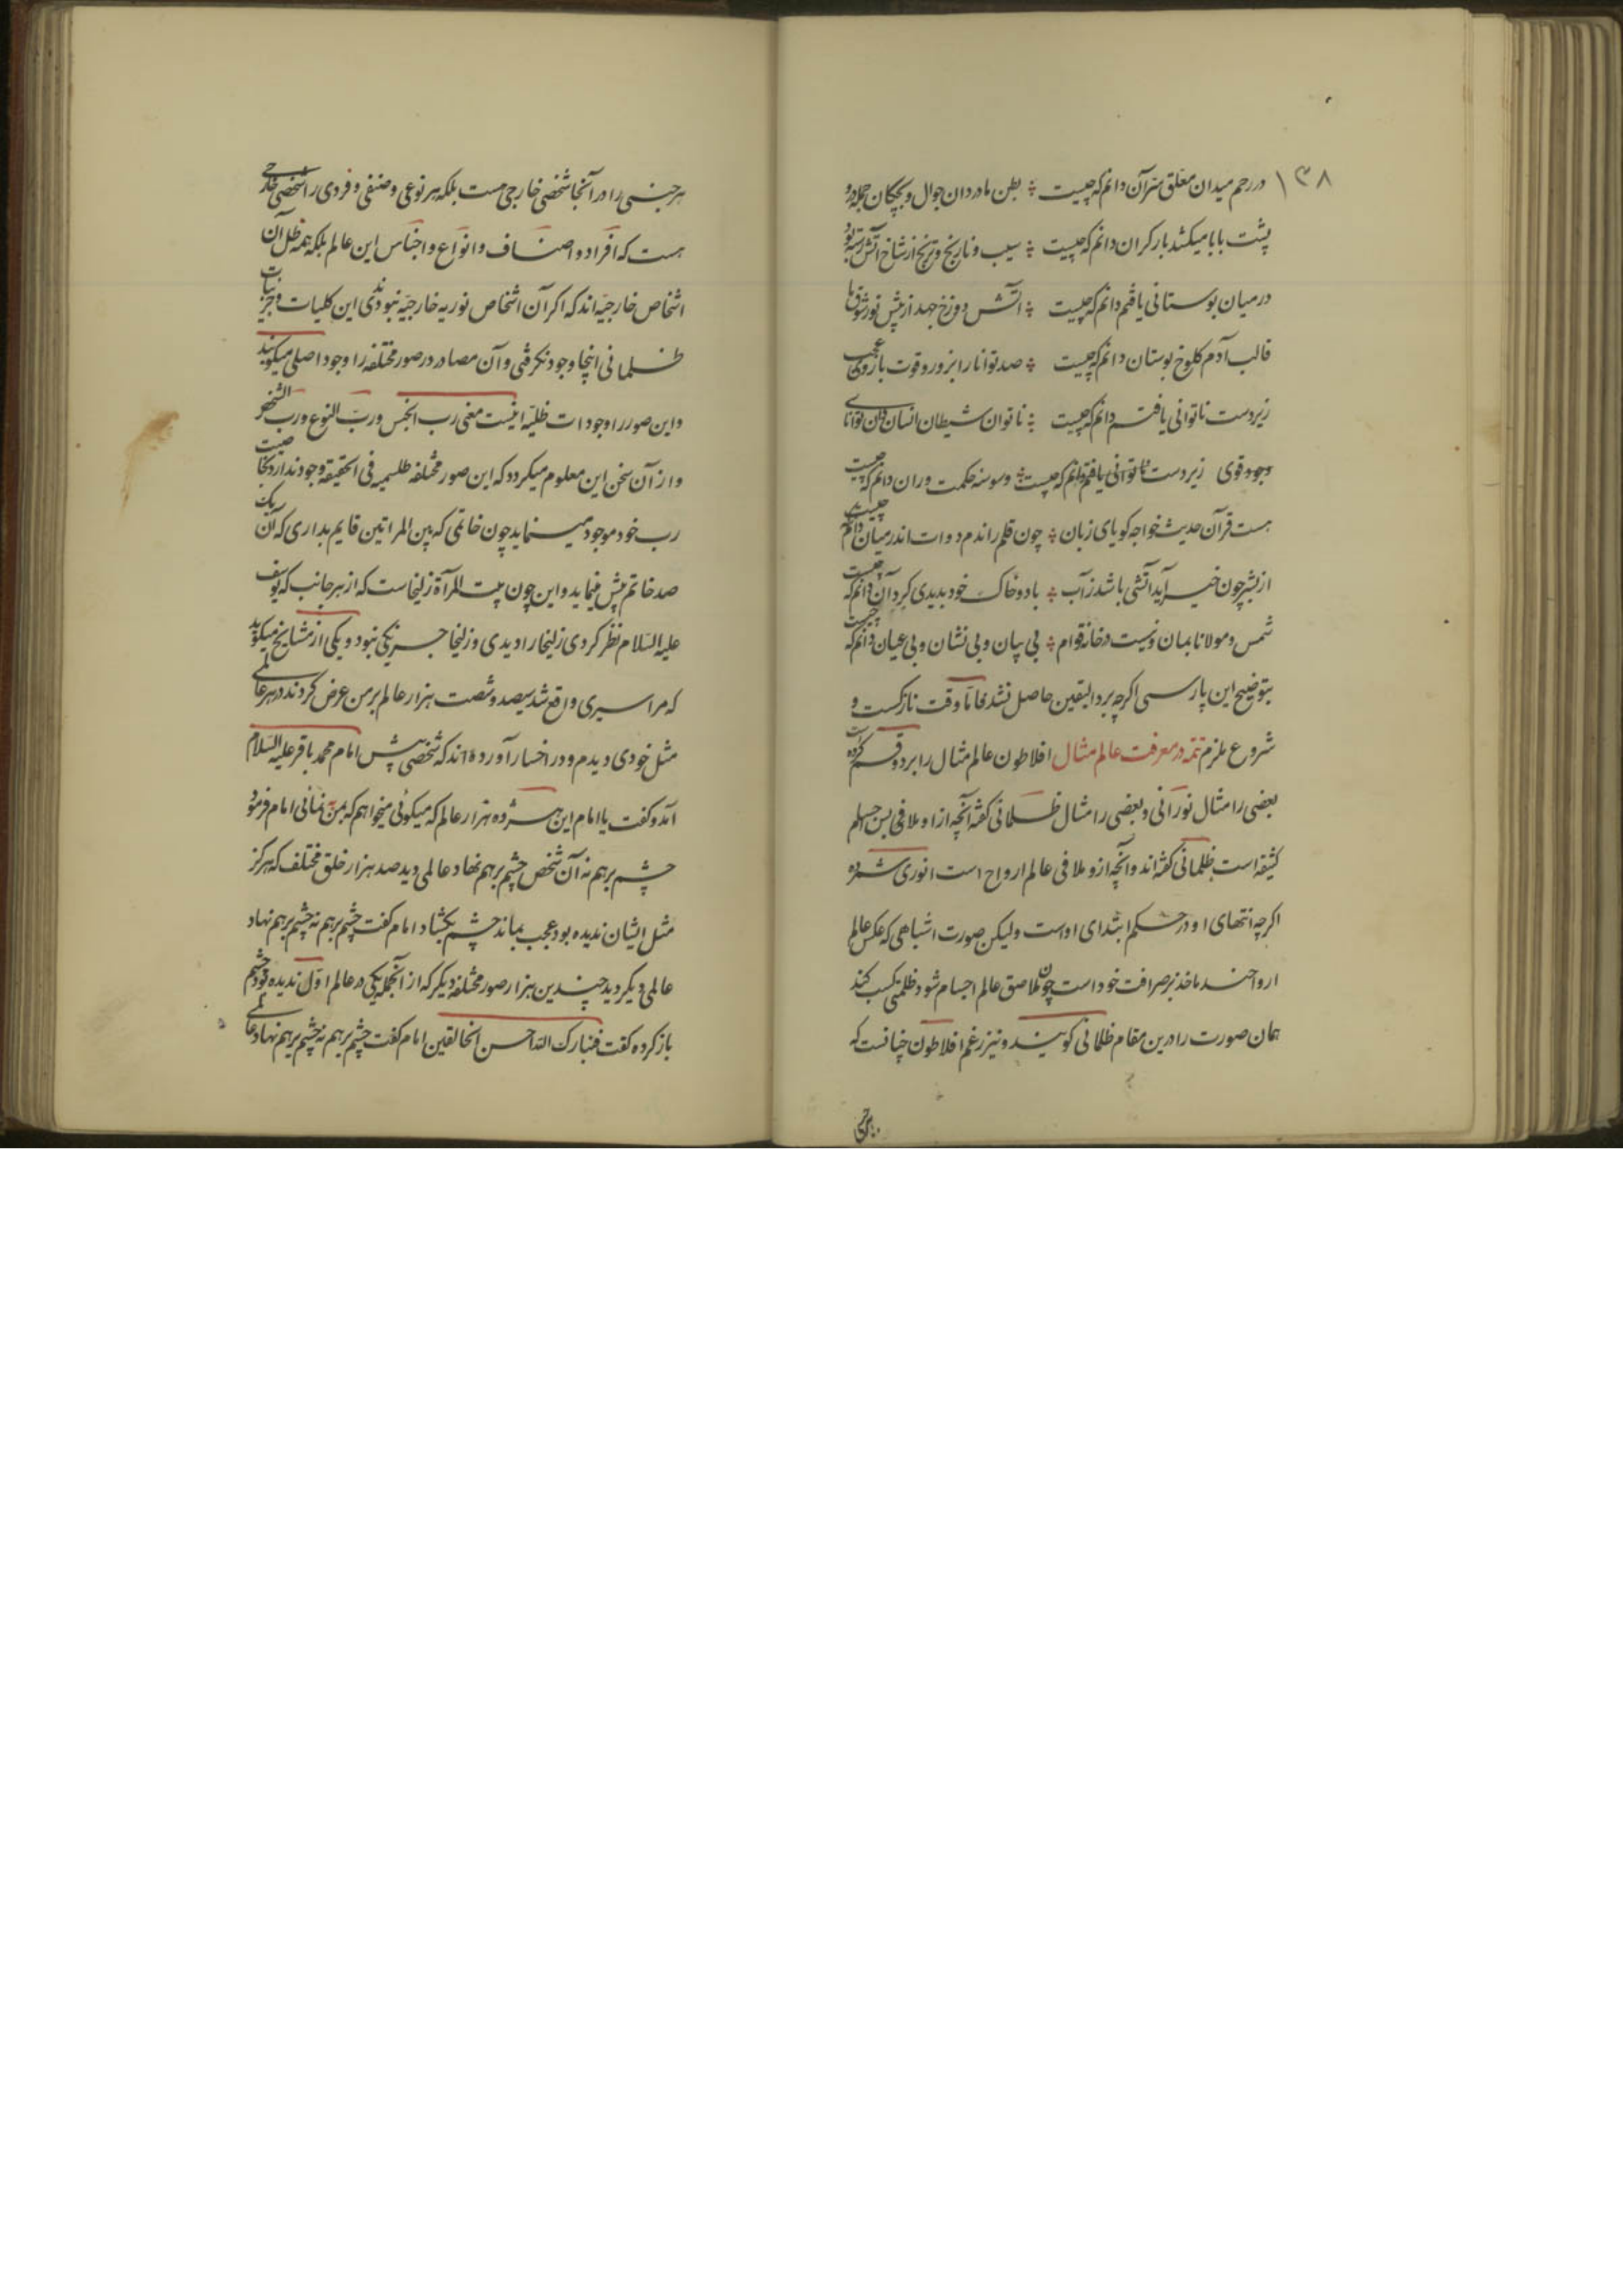 ۱۳۸
در رحم میدان معلق سر آن دانم که چیست ؛ بطن مادر دان جوال و بچگان جمله درو
پشت بابا میکشد بار کران دانم که چیست ؛ سیب و نارنج و ترنج از شاخ آتش رسته بود
در میان بوستانی یافتم دانم که چیست ؛ آتش دوزخ جهد از پیش نور شوق ما
قالب آدم کلوخ بوستان دانم که چیست ؛ صد توانا را بزور و قوت بازوی عجب
زیردست ناتوانی یافتم دانم که چیست ؛ ناتوان شیطان انسان دان توانای
وجود قوی زیردست ناتوانی یافتم دانم که چیست ؛ وسوسه حکمت وران دانم که چیست
هست قرآن حدیث خواجه کویای زبان ؛ چون قلم راندم دوات اندر میان دانم که چیست
از بشر چون خیر آید آتشی باشد ز آب ؛ باد و خاک خود بدیدی کرد آن دانم که چیست
شمس و مولانا بمان و نیست در خانه قوام ؛ بی بیان و بی نشان و بی عیان دانم که چیست
بتوضیح این پارسی اکرچه برد الیقین حاصل نشد فاما وقت نازکست و
شروع ملزم تتمه در معرفت عالم مثال افلاطون عالم مثال را بر دو قسم کرده است
بعضی را مثال نورانی و بعضی را مثال ظلمانی گفته آنچه از او ملاقی بس جسم
کثیفه است ظلمانی گفته‌اند و آنچه ازو ملاقی عالم ارواح است انوری شمرده
اکرچه انتهای او در حکم ابتدای اوست ولیکن صورت اشباهی که عکس عالم
ارواحند ماخذ بر صرافت خود است چون ملاصق عالم اجسام شود ظلمتی کسب کند
همان صورت را درین مقام ظلمانی کویند و نیز زعم افلاطون چنانست که
هر جنسی
هر جنسی را در آنجا شخصی خارجی هست بلکه هر نوعی و صنفی و فردی را شخصی خارجی
هست که افراد و اصناف و انواع و اجناس این عالم بلکه همه ظل آن
اشخاص خارجیه‌اند که اکر آن اشخاص نوریه خارجیه نبودندی این کلیات و جزئیات
ظلمانی اینجا وجود نکرفتی و آن مصادر در صور مختلفه را وجود اصلی میکویند
و این صور را وجودات ظلیه اینست معنی رب الجنس و رب النوع و رب الشخص
و از آن سخن این معلوم میکردد که این صور مختلفه طلسمیه فی الحقیقه وجود ندارد بجا
رب خود موجود مینماید چون خاتمی که بین المراتین قایم بداری که آن یک
صد خاتم بیش نماید و این چون بیت المرآة زلیخاست که از هر جانب که یوسف
علیه السلام نظر کردی زلیخا را دیدی و زلیخا جز یکی نبود و یکی از مشایخ میکوید
که مرا سیری واقع شد سیصد و شصت هزار عالم بر من عرض کردند در هر عالمی
مثل خودی دیدم و در اخبار آورده‌اند که شخصی پیش امام محمد باقر علیه السلام
آمد و کفت یا امام این هژده هزار عالم که میکوئی میخواهم که بمن نمائی امام فرمود
چشم بر هم نه آن شخص چشم بر هم نهاد عالمی دید صد هزار خلق مختلف که هرکز
مثل ایشان ندیده بود عجب بماند چشم بکشاد امام کفت چشم بر هم نه چشم بر هم نهاد
عالمی دیکر دید چندین هزار صور مختلفه دیکر که از آنجمله یکی در عالم اول ندیده بود چشم
باز کرده کفت فتبارک الله احسن الخالقین امام کفت چشم بر هم نه چشم بر هم نهاد عالمی